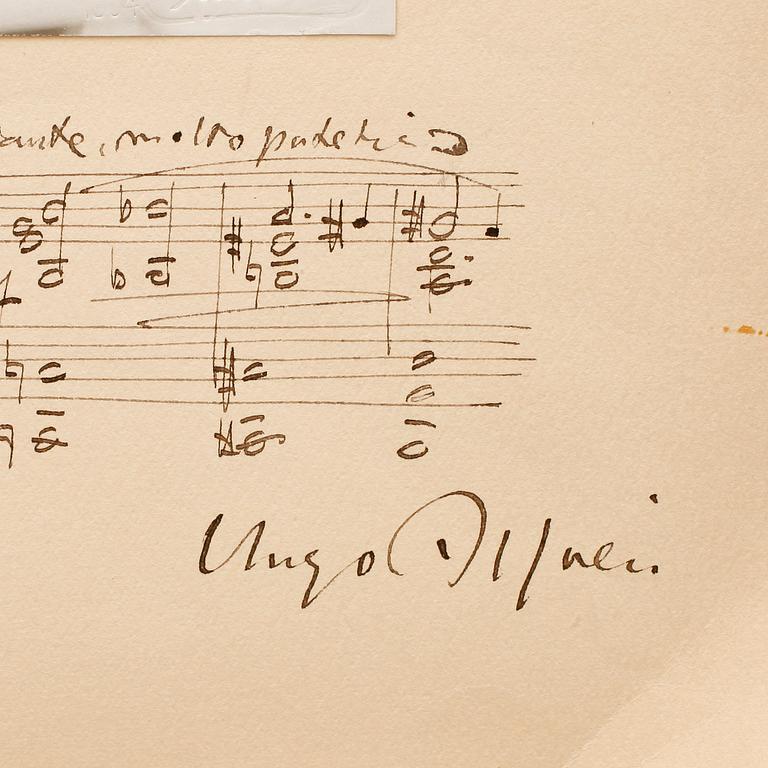 molto patetico
Hugo Alfvén